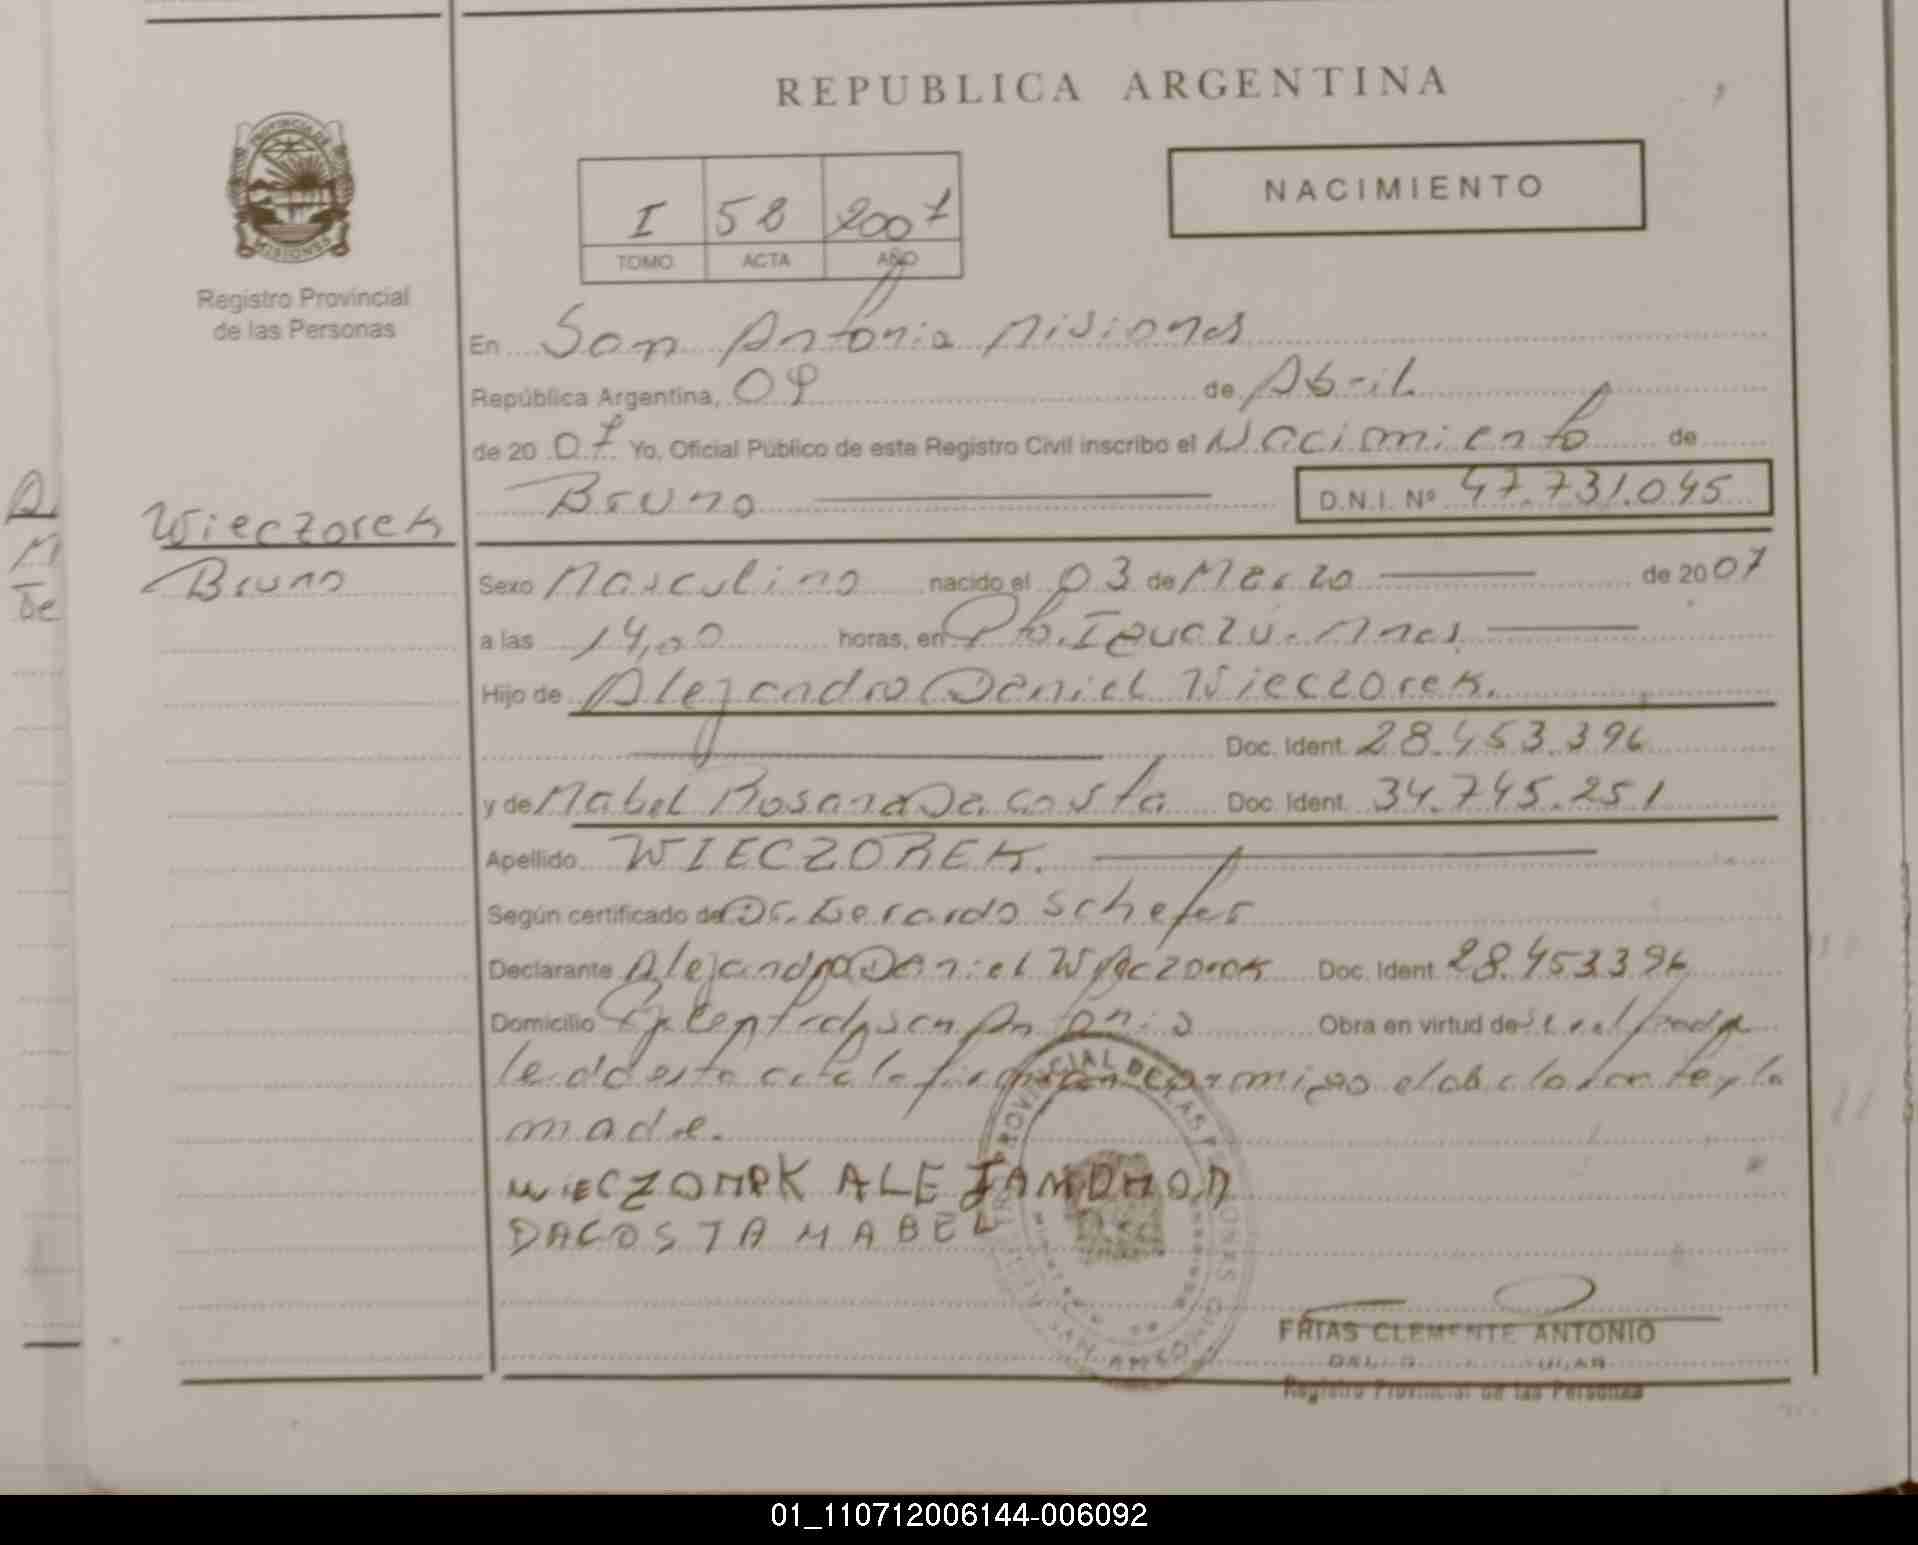 REPUBLICA ARGENTINA
PROVINCIA DE
MISIONES
Registro Provincial
de las Personas
NACIMIENTO
I 58 2007
TOMO ACTA AÑO
En San Antonio Misiones
República Argentina, 09 de Abril
de 20 07 Yo, Oficial Público de este Registro Civil inscribo el Nacimiento de
Bruno D.N.I. Nº 47.731.045
Wieczorek
Bruno
Sexo Masculino nacido el 03 de Marzo de 2007
a las 14,00 horas, en Pto. Iguazú. Mnes.
Hijo de Alejandro Daniel Wieczorek.
Doc. Ident. 28.453.396
y de Mabel Rosana Da Costa Doc. Ident. 34.745.251
Apellido WIECZOREK.
Según certificado de Dr. Gerardo Schefer
Declarante Alejandro Daniel Wieczorek Doc. Ident. 28.453396
Domicilio San Antonio Obra en virtud de
leida esta acta la firman conmigo el declarante y la
madre.
WIECZORK ALEJANDRO D
DACOSTA MABEL
FRIAS CLEMENTE ANTONIO
Registro Provincial de las Personas
01_110712006144-006092